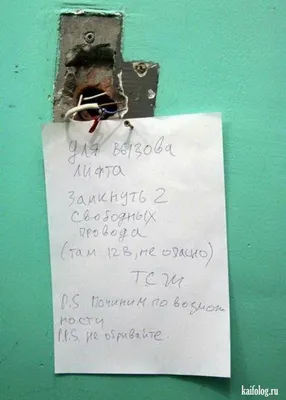 Для вызова
лифта
Замкнуть 2
свободных
провода
(там 12В, не опасно)
ТСЖ
P.S. Починим по возмож
ности
P.P.S. не обрывайте.
kaifolog.ru